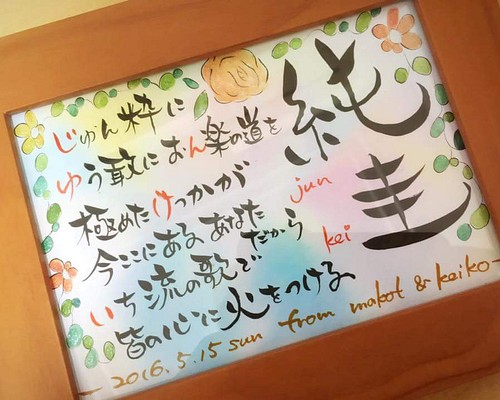 純圭
jun
kei
じゅん粋に
ゆう敢におん楽の道を
極めたけっかが
今ここにある あなただから
いち流の歌で
皆の心に火をつける
2016.5.15 sun from makot & keiko